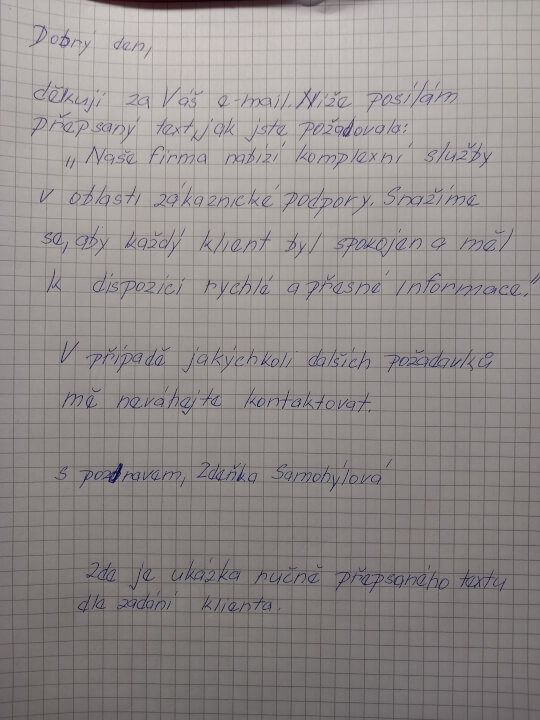 Dobrý den,
děkuji za Váš e-mail. Níže posílám
přepsaný text, jak jste požadovala:
„Naše firma nabízí komplexní služby
v oblasti zákaznické podpory. Snažíme
se, aby každý klient byl spokojen a měl
k dispozici rychlé a přesné informace."
V případě jakýchkoli dalších požadavků
mě neváhejte kontaktovat.
s pozdravem, Zdeňka Samohýlová
Zde je ukázka ručně přepsaného textu
dle zadání klienta.